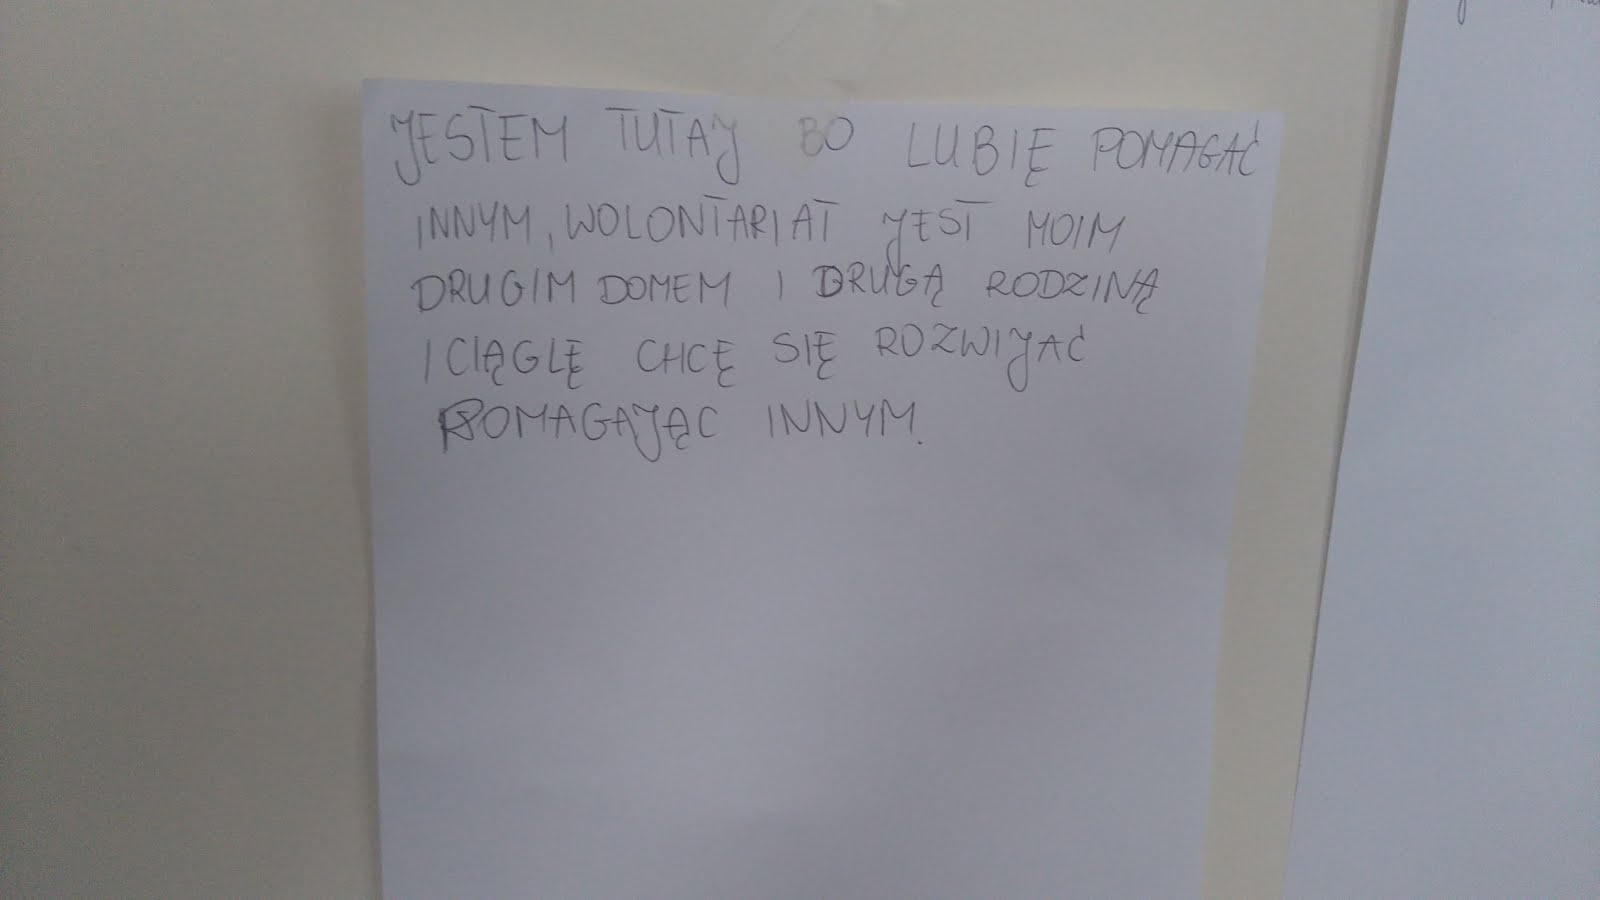 JESTEM TUTAJ BO LUBIĘ POMAGAĆ
INNYM, WOLONTARIAT JEST MOIM
DRUGIM DOMEM I DRUGĄ RODZINĄ
I CIĄGLĘ CHCĘ SIĘ ROZWIJAĆ
POMAGAJĄC INNYM.